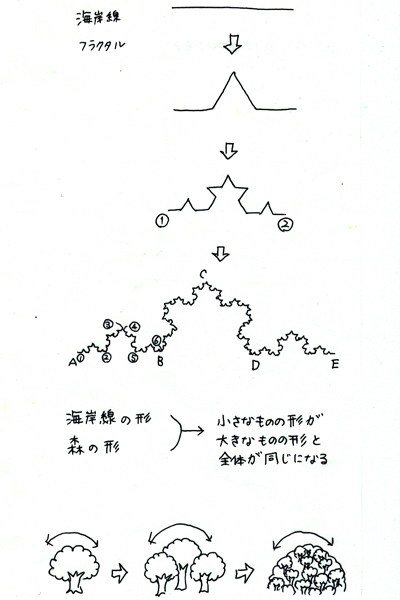 海岸線
フラクタル
① ②
C
③ ④
⑥
A ① ② ⑤ B D E
海岸線の形
森の形
小さなものの形が
大きなものの形と
全体が同じになる